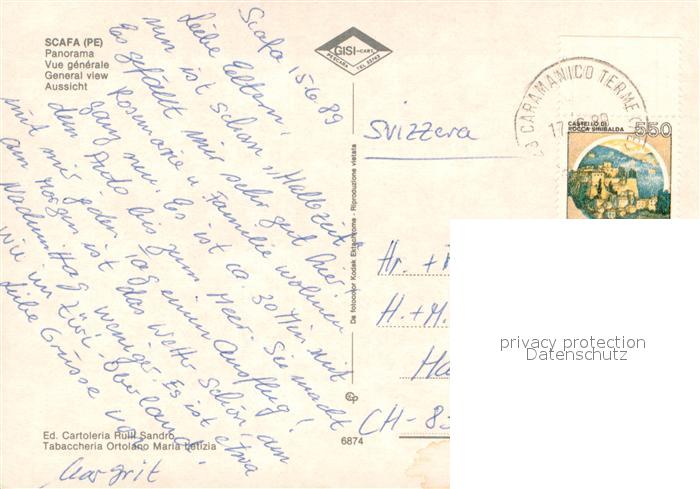 SCAFA (PE)
Panorama
Vue générale
General view
Aussicht
GISI-CART.
PESCARA
Scafa 15.6.89
Liebe Eltern,
nun ist schon "Halbzeit".
Es gefällt mir sehr gut hier.
Rosmarie u Familie wohnen
ganz neu. Es ist ca. 30 Min mit
dem Auto bis zum Meer. Sie macht
mit mir jeden Tag einen Ausflug!
am Morgen ist das Wetter schön, am
Nachmittag weniger. Es ist etwa
wie im Züri-Oberland.
Liebe Grüsse von
Margrit
Ed. Cartoleria Rulli Sandro
Tabaccheria Ortolano Maria Letizia
De fotocolor Kodak Ektachrome - Riproduzione vietata
6874
CARAMANICO TERME
CASTELLO DI
ROCCA SINIBALDA
550
Svizzera
Hr. +
H. + M.
Ha
CH-83
privacy protection
Datenschutz